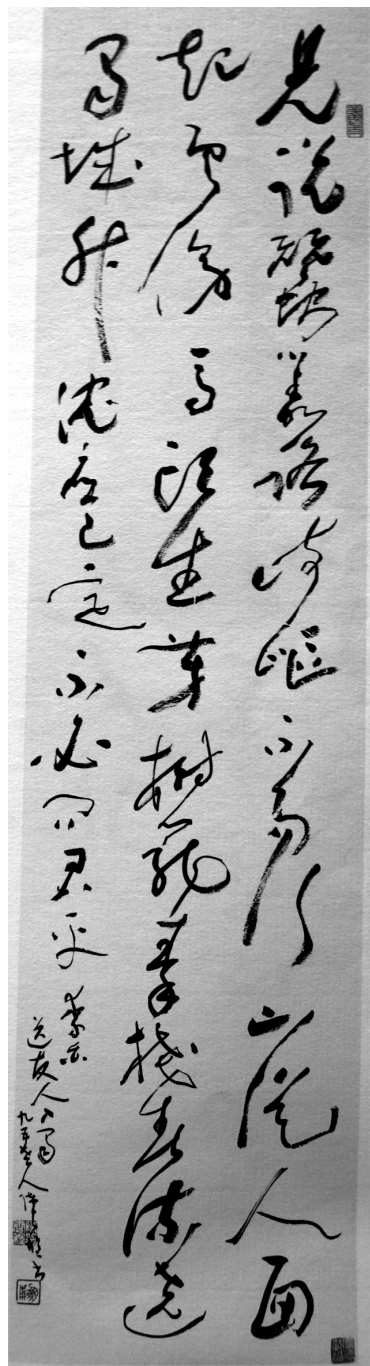 見說蠶叢路崎嶇不易行山從人面
起雲傍馬頭生芳樹籠秦棧春流遶
蜀城升沈應已定不必問君平 李白
送友人入蜀